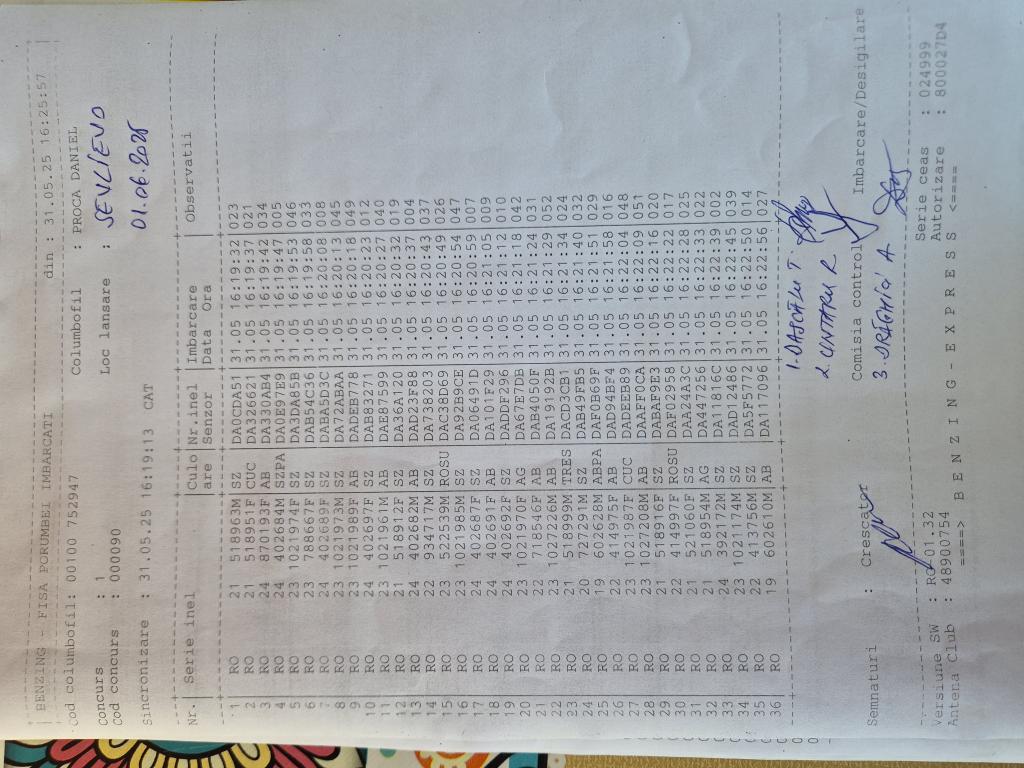 BENZING - FISA PORUMBEI IMBARCATI din : 31.05.25 16:25:57
Cod columbofil: 00100 752947 Columbofil : PROCA DANIEL
Concurs : 1 Loc lansare : SEVLIEVO
Cod concurs : 000090
01.06.2025
Sincronizare : 31.05.25 16:19:13 CAT
Nr. Serie inel Culo Nr.inel Imbarcare Observatii
are Senzor Data Ora
1 RO 21 518963M SZ DA0CDA51 31.05 16:19:32 023
2 RO 21 518951F CUC DA326621 31.05 16:19:37 021
3 RO 24 870193F AB DA330AB4 31.05 16:19:42 034
4 RO 24 402684M SZPA DA0E07E9 31.05 16:19:47 005
5 RO 23 1021974F SZ DA3DA85B 31.05 16:19:53 046
6 RO 23 788667F SZ DAB54C36 31.05 16:19:58 033
7 RO 24 402689F SZ DABA5D3C 31.05 16:20:08 008
8 RO 23 1021973M SZ DA72ABAA 31.05 16:20:13 045
9 RO 23 1021989F AB DADEB778 31.05 16:20:18 049
10 RO 24 402697F SZ DAB83271 31.05 16:20:23 012
11 RO 23 1021961M AB DAE87599 31.05 16:20:27 040
12 RO 21 518912F SZ DA36A120 31.05 16:20:32 019
13 RO 24 402682M AB DAD23F88 31.05 16:20:37 004
14 RO 22 934717M SZ DA738203 31.05 16:20:43 037
15 RO 22 522539M ROSU DAC38D69 31.05 16:20:49 026
16 RO 23 1021985M SZ DA92B9CE 31.05 16:20:54 047
17 RO 24 402687F SZ DA06491D 31.05 16:20:59 007
18 RO 24 402691F AB DA101F29 31.05 16:21:05 009
19 RO 24 402692F SZ DADDF296 31.05 16:21:12 010
20 RO 23 1021970F AG DA67E7DB 31.05 16:21:18 042
21 RO 22 718546F AB DAB4050F 31.05 16:21:24 031
22 RO 23 1027226M AB DA19192B 31.05 16:21:29 052
23 RO 21 518999M TRES DACD3CB1 31.05 16:21:34 024
24 RO 20 727291M SZ DAB49FB5 31.05 16:21:40 032
25 RO 19 602628M ABPA DAF0B69F 31.05 16:21:51 029
26 RO 22 414975F AB DAD94BF4 31.05 16:21:58 016
27 RO 23 1021987F CUC DADEEB89 31.05 16:22:04 048
28 RO 23 1027208M AB DAAFF0CA 31.05 16:22:09 051
29 RO 21 518916F SZ DABAF9E3 31.05 16:22:16 020
30 RO 22 414997F ROSU DAF02958 31.05 16:22:22 017
31 RO 21 521060F SZ DAA24A3C 31.05 16:22:28 025
32 RO 21 518954M AG DA447256 31.05 16:22:33 022
33 RO 24 392172M SZ DA11816C 31.05 16:22:39 002
34 RO 23 1021174M SZ DAD12486 31.05 16:22:45 039
35 RO 22 413756M SZ DA5F5772 31.05 16:22:50 014
36 RO 19 602610M AB DA117096 31.05 16:22:56 027
1. DASCALU T.
2. UNTARU R
Semnaturi : Crescator Comisia control Imbarcare/Desigilare
3. DRĂGHICI A
Versiune SW : RO 01.32 Serie ceas : 024999
Antena Club : 48900754 Autorizare : 800027D4
====> B E N Z I N G - E X P R E S S <====